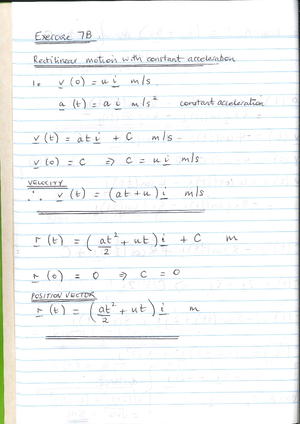 Exercise 7B
Rectilinear motion with constant acceleration
1. v(0) = u i m/s
a(t) = a i m/s² constant acceleration
v(t) = at i + C m/s
v(0) = C ⇒ C = u i m/s
VELOCITY
∴ v(t) = (at + u) i m/s
r(t) = (at²/2 + ut) i + C m
r(0) = 0 ⇒ C = 0
POSITION VECTOR
r(t) = (at²/2 + ut) i m